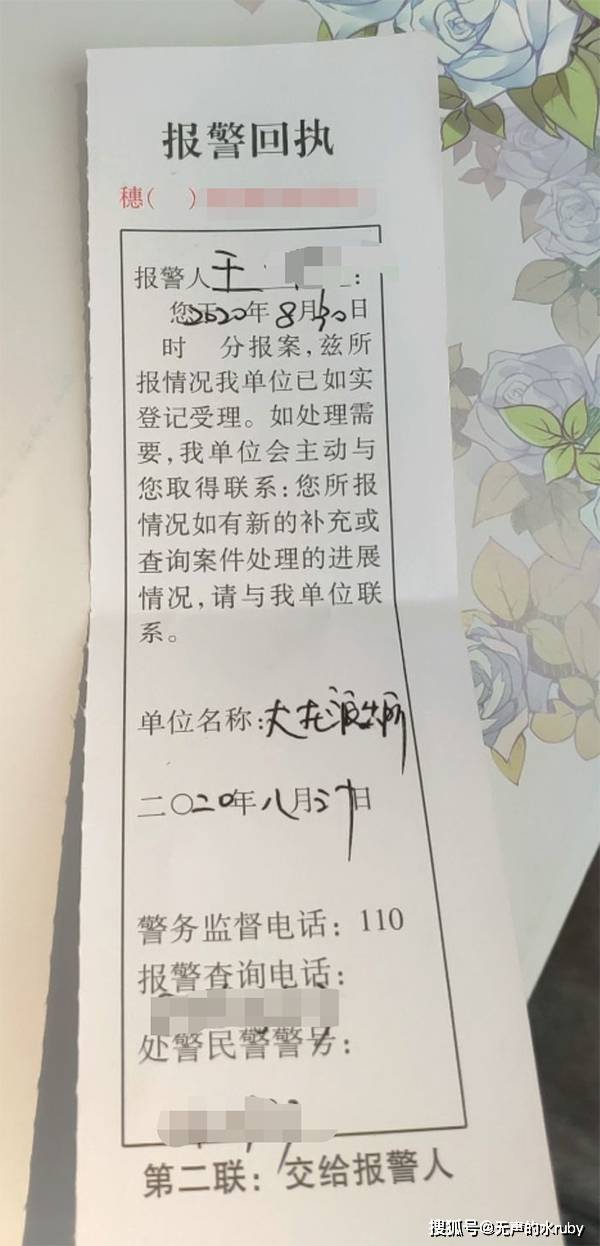 报警回执
穗( )
报警人王 :
您于2020年8月30日
时 分报案,兹所
报情况我单位已如实
登记受理。如处理需
要,我单位会主动与
您取得联系:您所报
情况如有新的补充或
查询案件处理的进展
情况,请与我单位联
系。
单位名称:大龙派出所
二〇20年八月 日
警务监督电话: 110
报警查询电话:
处警民警警号:
第二联: 交给报警人
搜狐号@无声的水ruby